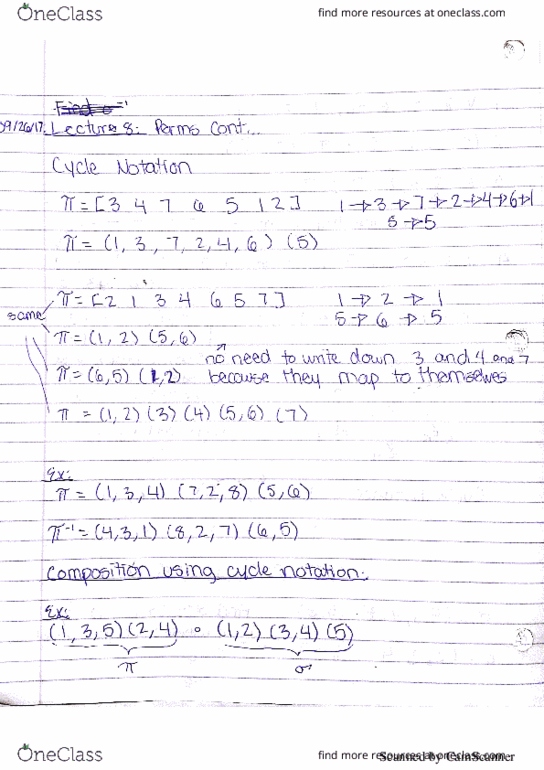 OneClass
find more resources at oneclass.com
09/26/17
Lecture 8: Perms Cont...
Cycle Notation
π = [3 4 7 6 5 1 2]   1→3→7→2→4→6→1
5→5
π = (1, 3, 7, 2, 4, 6) (5)
same
π = [2 1 3 4 6 5 7]   1→2→1
5→6→5
π = (1, 2) (5, 6)
no need to write down 3 and 4 and 7
π = (6,5) (1,2)   because they map to themselves
π = (1, 2) (3) (4) (5, 6) (7)
Ex:
π = (1, 3, 4) (7, 2, 8) (5, 6)
π⁻¹ = (4, 3, 1) (8, 2, 7) (6, 5)
Composition using cycle notation:
Ex:
(1, 3, 5) (2, 4) ∘ (1, 2) (3, 4) (5)
π   σ
OneClass
find more resources at oneclass.com
Scanned by CamScanner